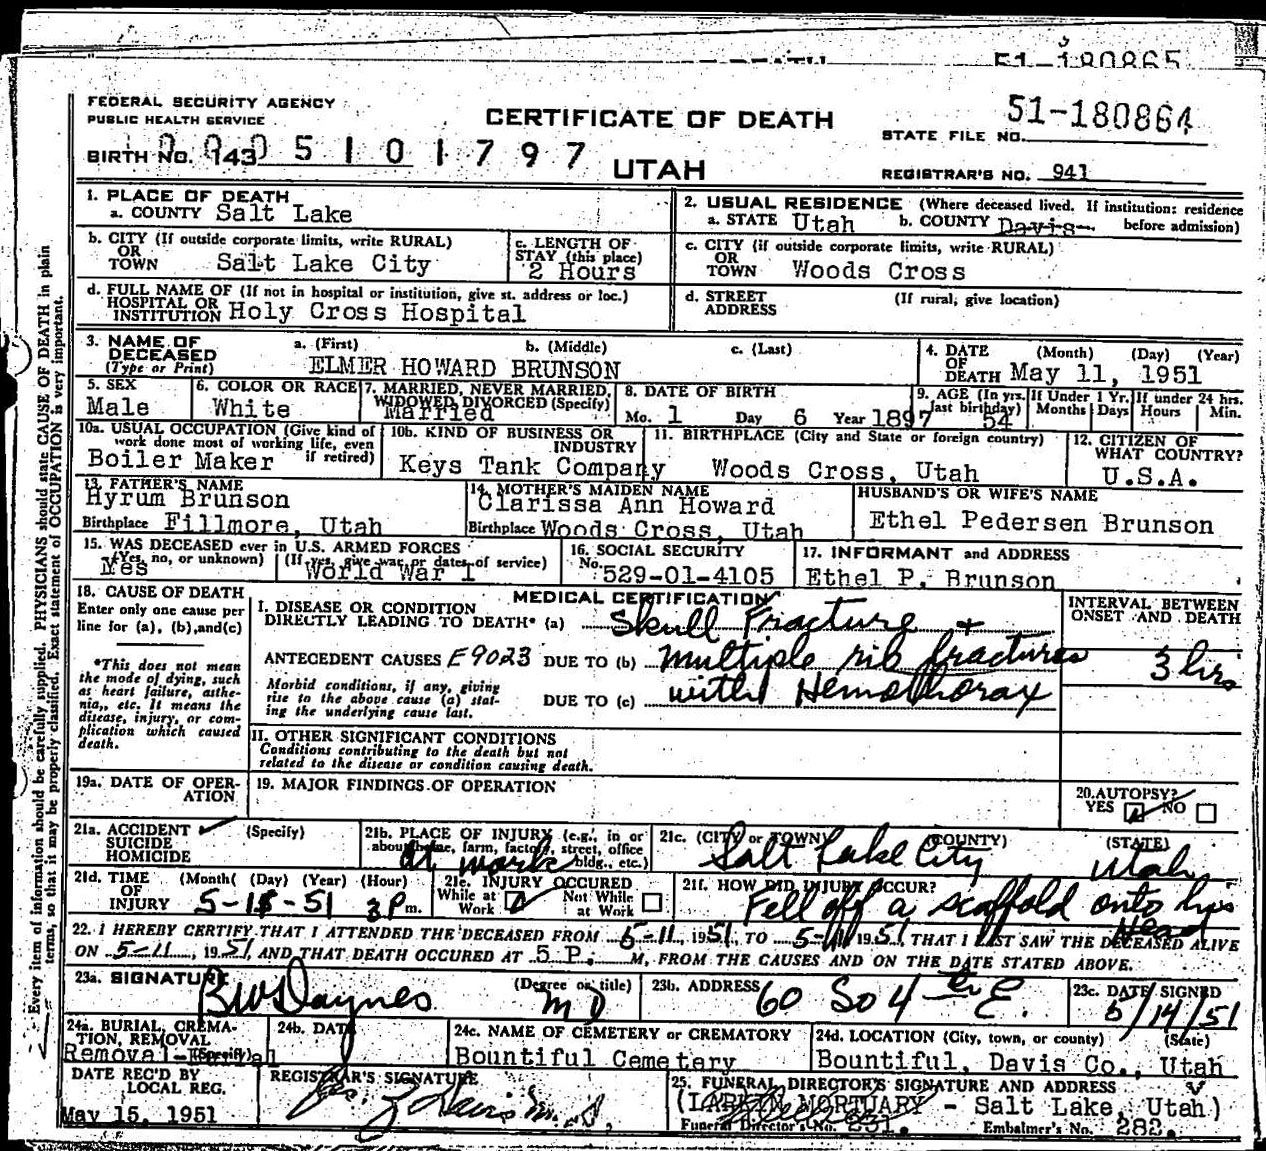 51-180865
FEDERAL SECURITY AGENCY
PUBLIC HEALTH SERVICE
CERTIFICATE OF DEATH
STATE FILE NO. 51-180864
BIRTH NO. 143 0 5 1 0 1 7 9 7
UTAH
REGISTRAR'S NO. 941
Every item of information should be carefully supplied. PHYSICIANS should state CAUSE OF DEATH in plain
terms, so that it may be properly classified. Exact statement of OCCUPATION is very important.
1. PLACE OF DEATH
a. COUNTY Salt Lake
2. USUAL RESIDENCE (Where deceased lived. If institution: residence
a. STATE Utah b. COUNTY Davis before admission)
b. CITY (If outside corporate limits, write RURAL)
OR
TOWN Salt Lake City
c. LENGTH OF
STAY (this place)
2 Hours
c. CITY (if outside corporate limits, write RURAL)
OR
TOWN Woods Cross
d. FULL NAME OF (If not in hospital or institution, give st. address or loc.)
HOSPITAL OR
INSTITUTION Holy Cross Hospital
d. STREET (If rural, give location)
ADDRESS
3. NAME OF
DECEASED
(Type or Print)
a. (First) b. (Middle) c. (Last)
ELMER HOWARD BRUNSON
4. DATE (Month) (Day) (Year)
OF
DEATH May 11, 1951
5. SEX
Male
6. COLOR OR RACE
White
7. MARRIED, NEVER MARRIED,
WIDOWED DIVORCED (Specify)
Married
8. DATE OF BIRTH
Mo. 1 Day 6 Year 1897
9. AGE (In yrs. last birthday) 54
If Under 1 Yr. Months Days
If under 24 hrs. Hours Min.
10a. USUAL OCCUPATION (Give kind of
work done most of working life, even
if retired)
Boiler Maker
10b. KIND OF BUSINESS OR
INDUSTRY
Keys Tank Company
11. BIRTHPLACE (City and State or foreign country)
Woods Cross, Utah
12. CITIZEN OF
WHAT COUNTRY?
U.S.A.
13. FATHER'S NAME
Hyrum Brunson
Birthplace Fillmore, Utah
14. MOTHER'S MAIDEN NAME
Clarissa Ann Howard
Birthplace Woods Cross, Utah
HUSBAND'S OR WIFE'S NAME
Ethel Pedersen Brunson
15. WAS DECEASED ever in U.S. ARMED FORCES
(Yes, no, or unknown) (If yes, give war or dates of service)
Yes World War 1
16. SOCIAL SECURITY
No. 529-01-4105
17. INFORMANT and ADDRESS
Ethel P. Brunson
18. CAUSE OF DEATH
Enter only one cause per
line for (a), (b), and (c)
*This does not mean
the mode of dying, such
as heart failure, asthe-
nia,, etc. It means the
disease, injury, or com-
plication which caused
death.
MEDICAL CERTIFICATION
I. DISEASE OR CONDITION
DIRECTLY LEADING TO DEATH* (a) Skull Fracture +
ANTECEDENT CAUSES E9023 DUE TO (b) Multiple rib fractures
Morbid conditions, if any, giving
rise to the above cause (a) stat-
ing the underlying cause last.
DUE TO (c) with Hemothorax
INTERVAL BETWEEN
ONSET AND DEATH
3 hrs
II. OTHER SIGNIFICANT CONDITIONS
Conditions contributing to the death but not
related to the disease or condition causing death.
19a. DATE OF OPER-
ATION
19. MAJOR FINDINGS OF OPERATION
20. AUTOPSY?
YES NO
21a. ACCIDENT ✓ (Specify)
SUICIDE
HOMICIDE
21b. PLACE OF INJURY (e.g., in or
about home, farm, factory, street, office
bldg., etc.)
at work
21c. (CITY or TOWN) (COUNTY) (STATE)
Salt Lake City Utah
21d. TIME (Month) (Day) (Year) (Hour)
OF
INJURY 5-11-51 3 P m.
21e. INJURY OCCURED
While at Work Not While at Work
21f. HOW DID INJURY OCCUR?
Fell off a scaffold onto his
Head
22. I HEREBY CERTIFY THAT I ATTENDED THE DECEASED FROM 5-11, 1951, TO 5-11 1951, THAT I LAST SAW THE DECEASED ALIVE
ON 5-11, 1951, AND THAT DEATH OCCURED AT 5 P. M, FROM THE CAUSES AND ON THE DATE STATED ABOVE.
23a. SIGNATURE (Degree or title)
BW Daynes M D
23b. ADDRESS
60 So 4th E.
23c. DATE SIGNED
5/14/51
24a. BURIAL, CREMA-
TION, REMOVAL
(Specify)
24b. DATE
24c. NAME OF CEMETERY or CREMATORY
Bountiful Cemetary
24d. LOCATION (City, town, or county) (State)
Bountiful, Davis Co., Utah
DATE REC'D BY
LOCAL REG.
May 15, 1951
REGISTRAR'S SIGNATURE
25. FUNERAL DIRECTOR'S SIGNATURE AND ADDRESS
(LARKIN MORTUARY - Salt Lake, Utah)
Funeral Director's No. 231. Embalmer's No. 282.